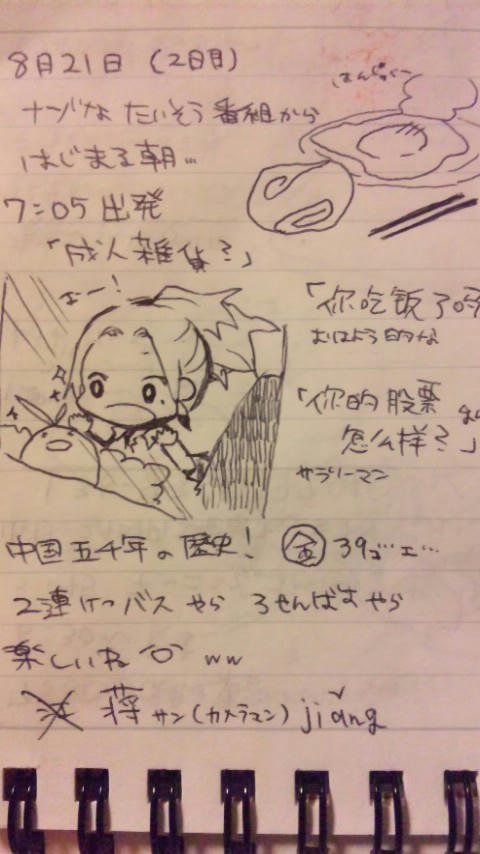 8月21日 (2日目)
ナゾな たいそう番組から
はじまる朝…
7:05 出発
「成人雑貨?」
えー!
「你吃饭了吗
おはよう的な
「你的股票
怎么样?」
サラリーマン
中国五千年の歴史! 金 39ゴーエ…
2連けつバス やら 3せんばす やら
楽しいね ww
蒋サン(カメラマン) jiǎng